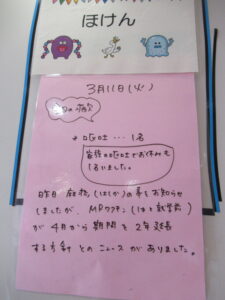 ほけん
3月11日(火)
今日の病欠
・嘔吐…1名
家族の嘔吐でお休みも
1名いました。
昨日 麻疹(はしか)の事をお知らせ
しましたが、MRワクチン(1才と就学前)
が4月から期間を2年延長
する方針とのニュースがありました。